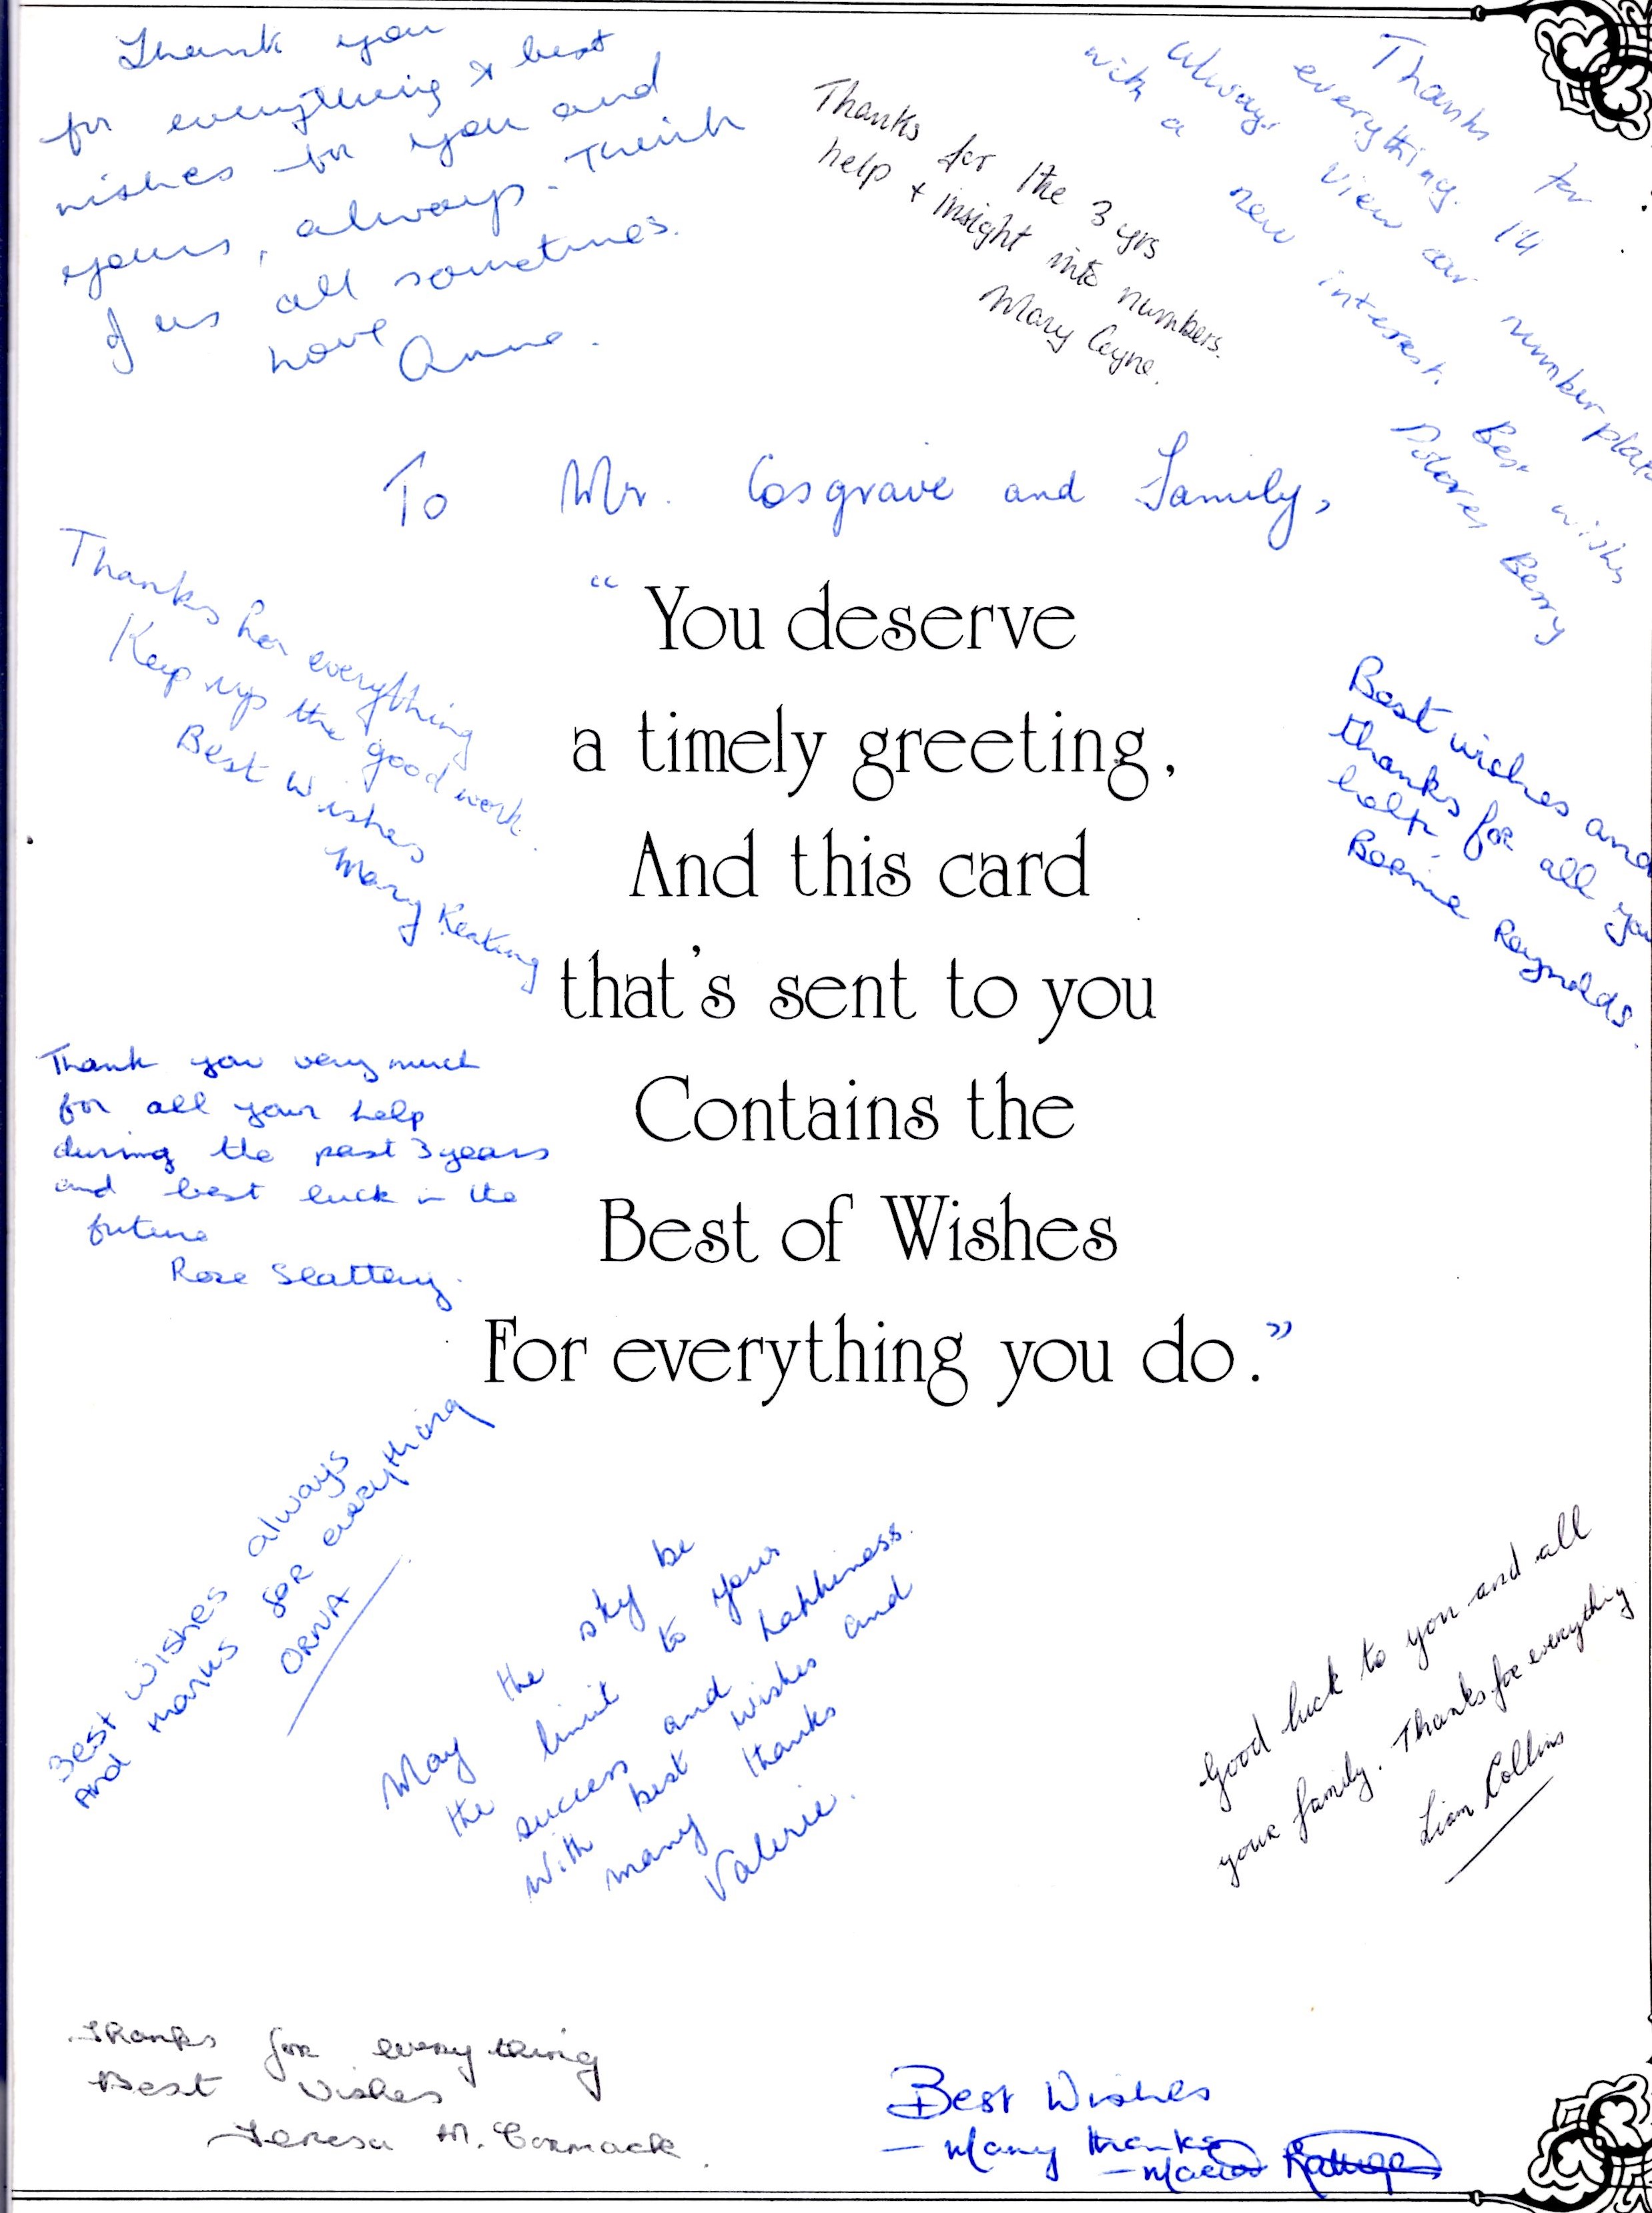 Thank you
for everything & best
wishes for you and
yours, always. Think
of us all sometimes.
Love
Anne.
Thanks for the 3 yrs
help + insight into numbers.
Mary Coyne.
Thanks for
everything. I'll
always view car number plates
with a new interest. Best wishes
Dolores Berry
To Mr. Cosgrave and Family,
Thanks for everything
Keep up the good work.
Best Wishes
Mary Keating
“You deserve
a timely greeting,
And this card
that's sent to you
Contains the
Best of Wishes
For everything you do.”
Best wishes and
thanks for all you
help.
Bernie Reynolds.
Thank you very much
for all your help
during the past 3 years
and best luck in the
future
Rose Slattery.
Best wishes always
And thanks for everything
ORNA
May the sky be
the limit to your
success and happiness.
With best wishes and
many thanks
Valerie.
Good luck to you and all
your family. Thanks for everything
Liam Collins
Thanks for everything
Best Wishes
Teresa M. Cormack.
Best Wishes
- Many thanks